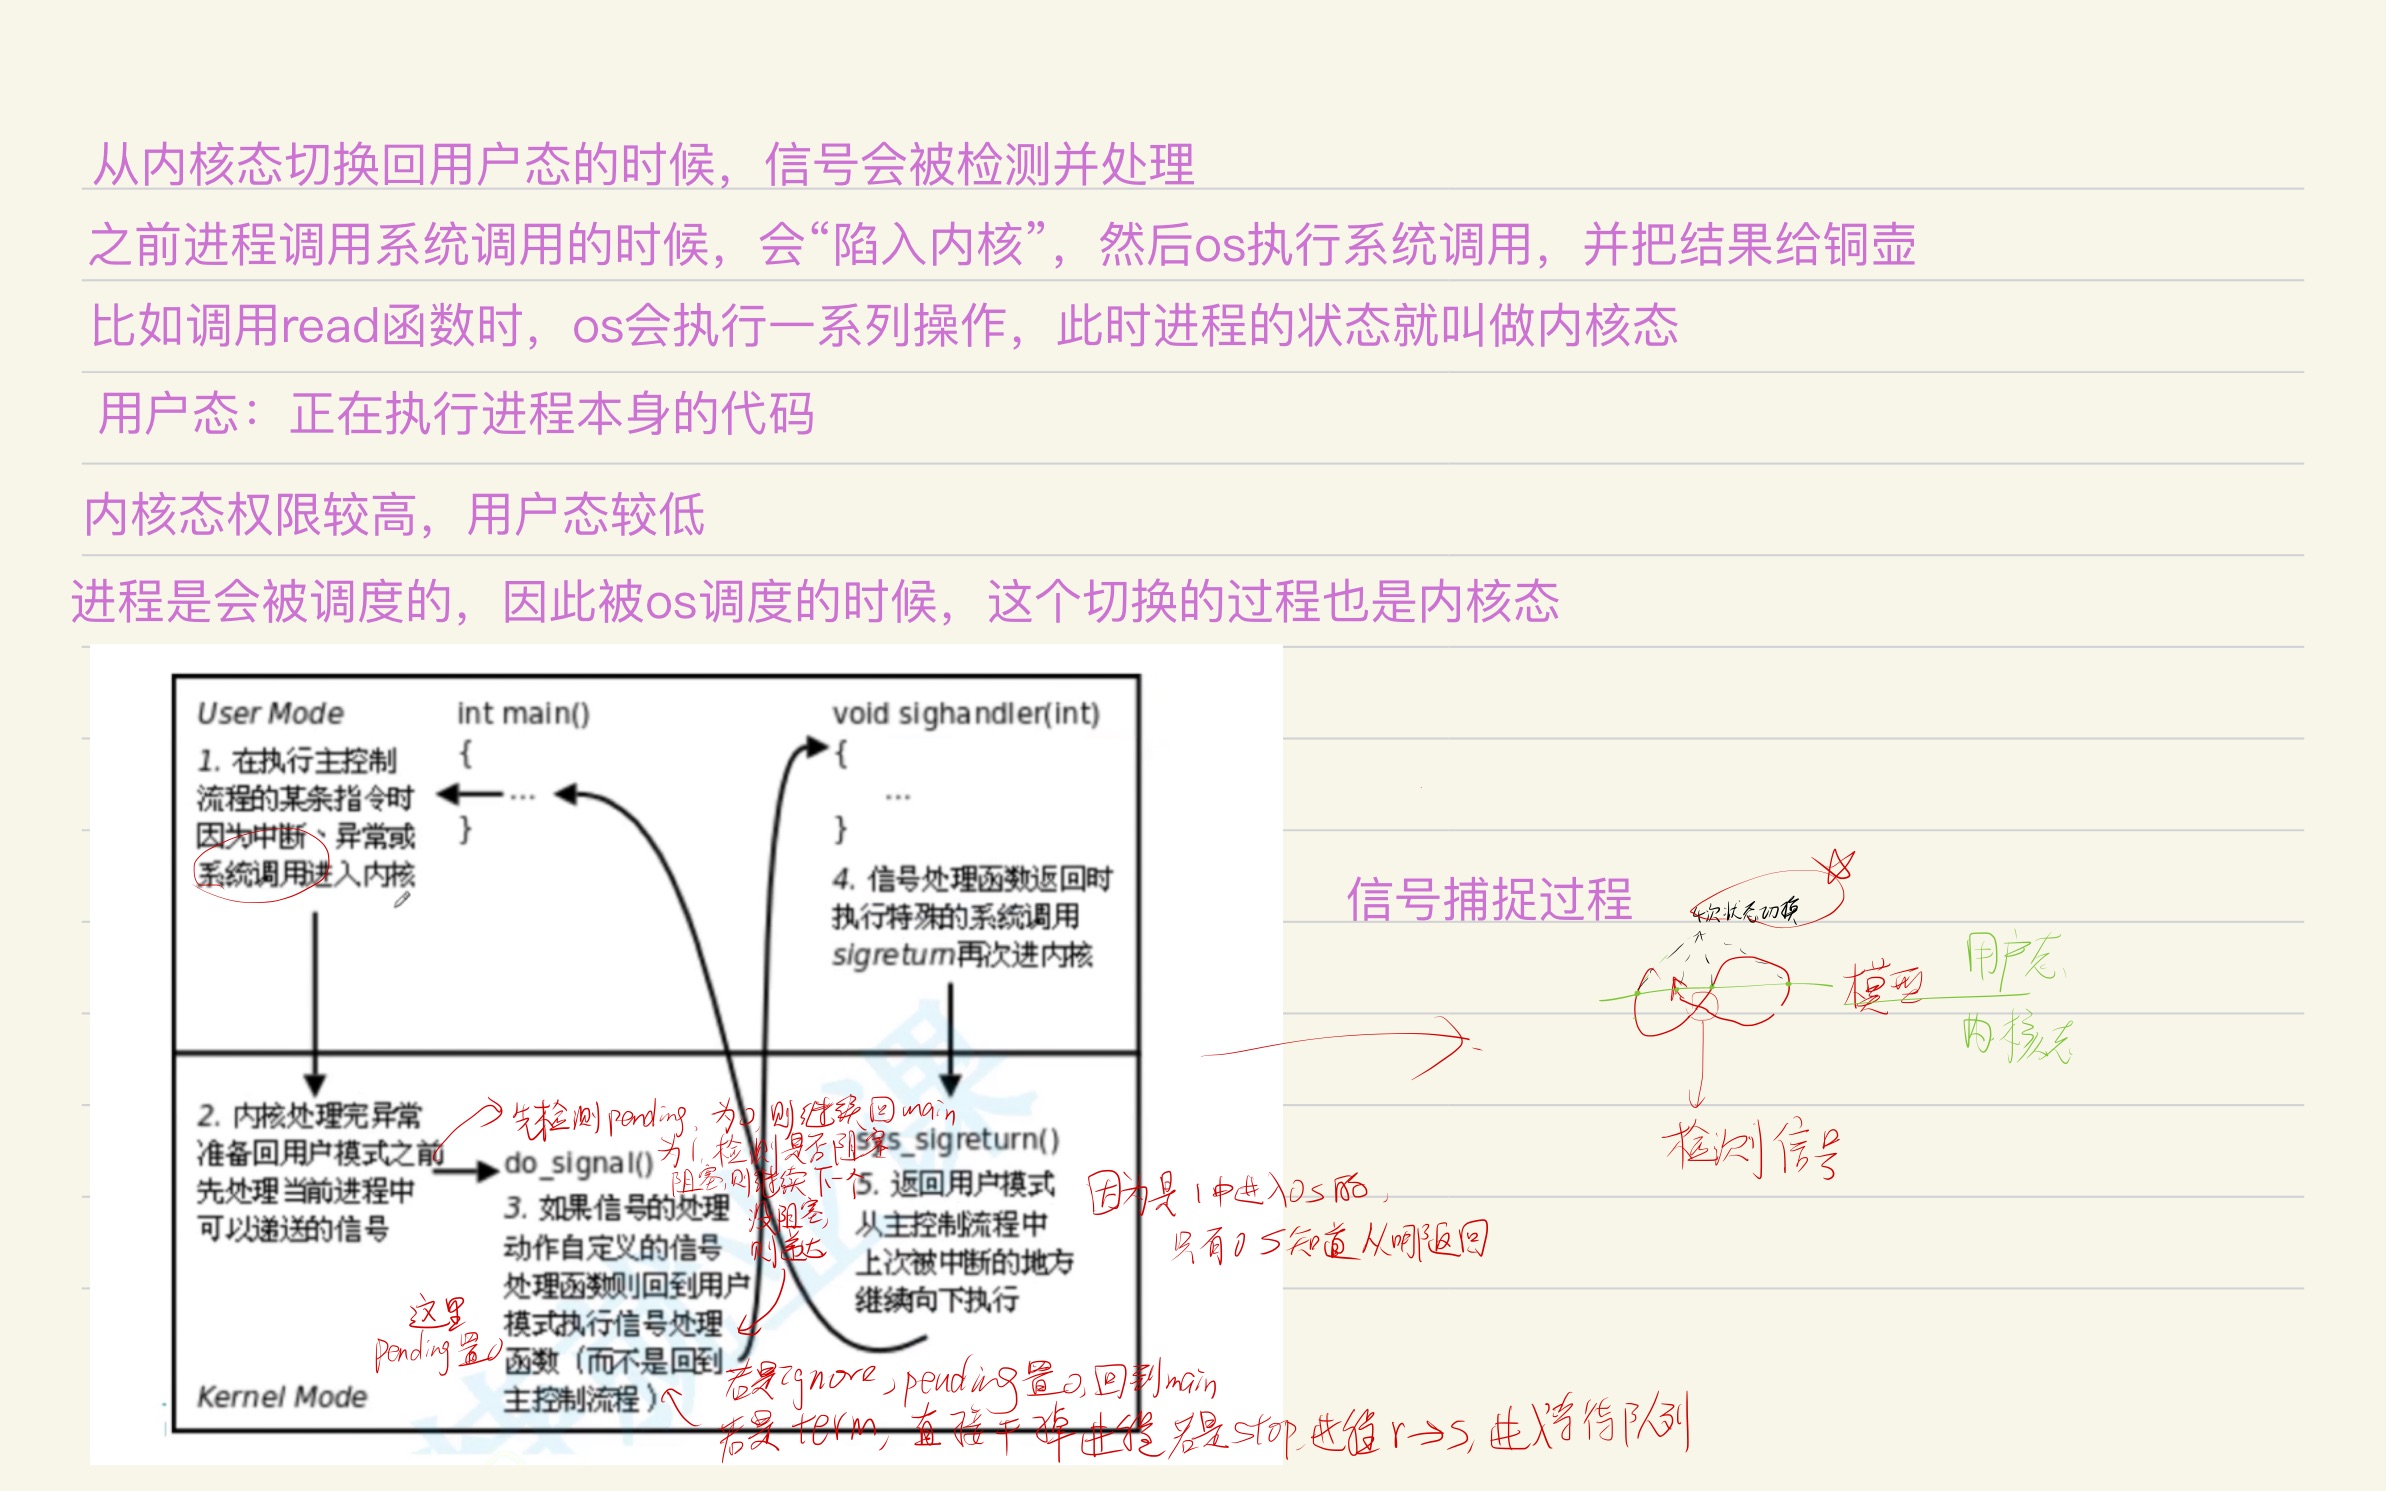 从内核态切换回用户态的时候，信号会被检测并处理
之前进程调用系统调用的时候，会“陷入内核”，然后os执行系统调用，并把结果给铜壶
比如调用read函数时，os会执行一系列操作，此时进程的状态就叫做内核态
用户态：正在执行进程本身的代码
内核态权限较高，用户态较低
进程是会被调度的，因此被os调度的时候，这个切换的过程也是内核态
User Mode
1. 在执行主控制
流程的某条指令时
因为中断、异常或
系统调用进入内核
int main()
{
...
}
void sighandler(int)
{
...
}
4. 信号处理函数返回时
执行特殊的系统调用
sigreturn再次进内核
2. 内核处理完异常
准备回用户模式之前
先处理当前进程中
可以递送的信号
先检测pending，为0，则继续回main
为1，检测是否阻塞
阻塞，则继续下一个
没阻塞，
则递达
do_signal()
3. 如果信号的处理
动作自定义的信号
处理函数则回到用户
模式执行信号处理
函数（而不是回到
主控制流程）
这里
pending置0
sys_sigreturn()
5. 返回用户模式
从主控制流程中
上次被中断的地方
继续向下执行
Kernel Mode
若是ignore，pending置0，回到main
若是term，直接干掉进程 若是stop，进程r→s，进入等待队列
因为是1中进入OS的，
只有OS知道从哪返回
信号捕捉过程
4次状态切换
模型
用户态
内核态
检测信号